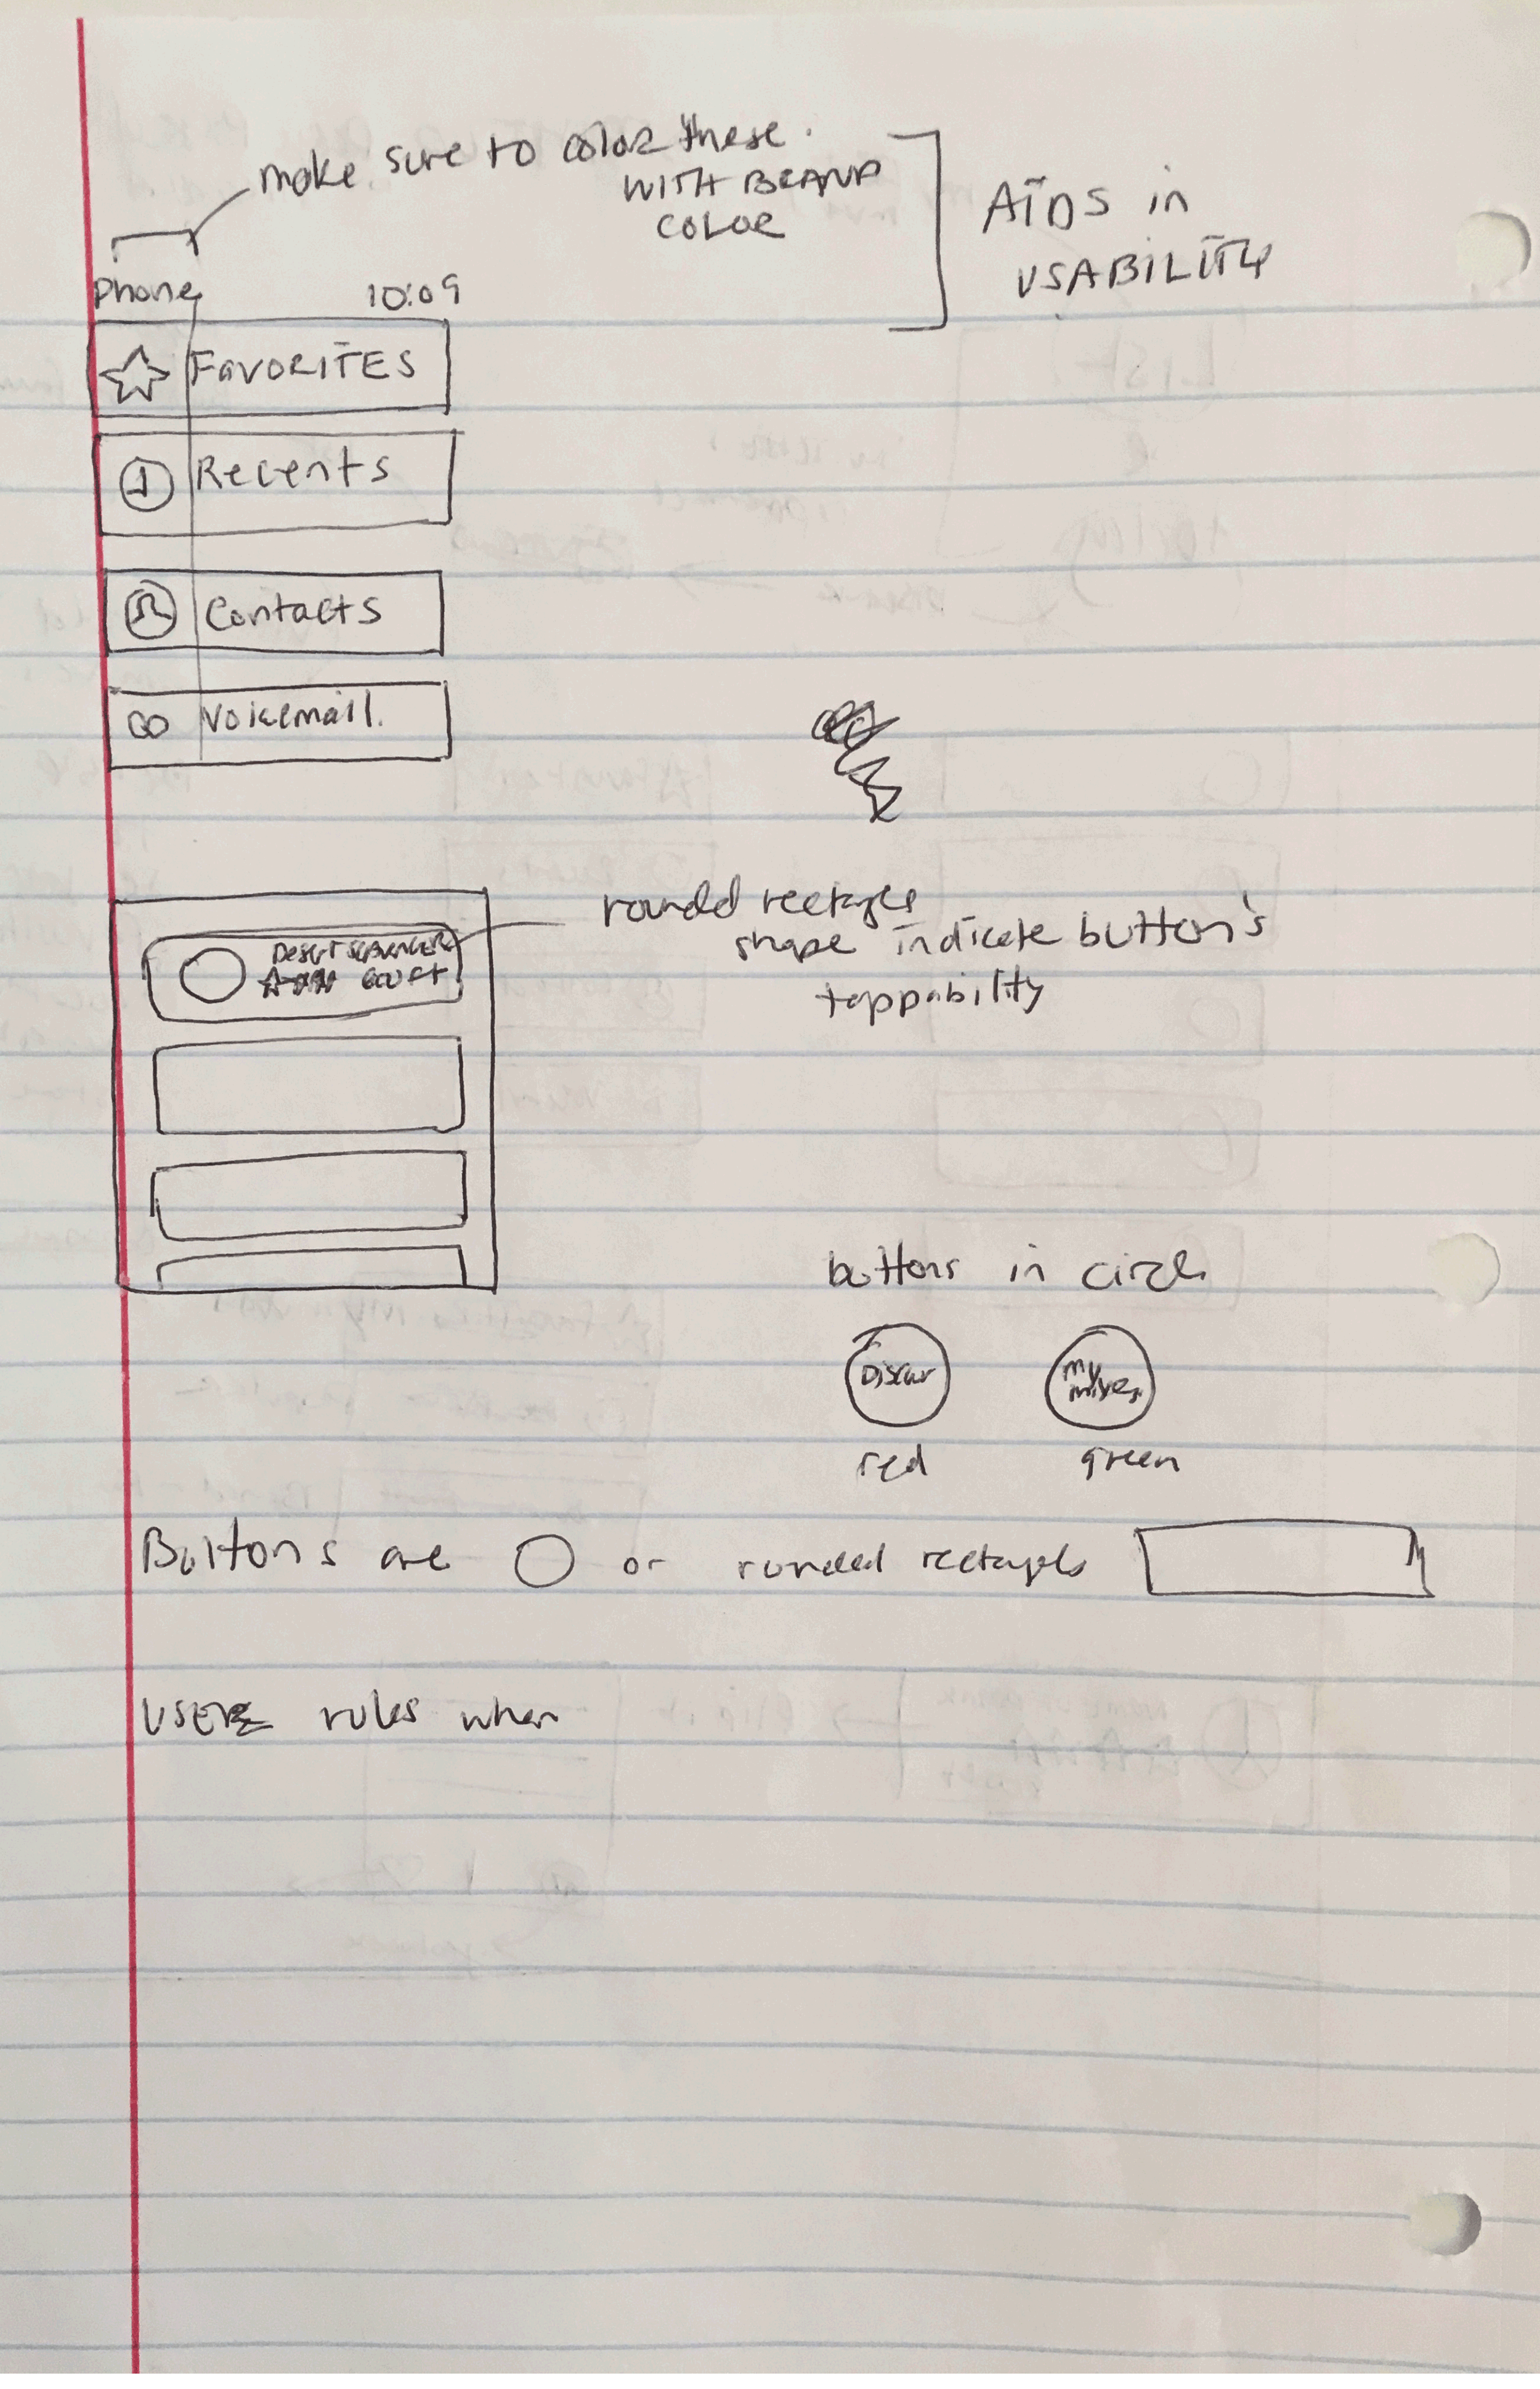 make sure to color these.
WITH BRAND
COLOR
AIDS in
USABILITY
Phone 10:09
FAVORITES
Recents
Contacts
Voicemail.
rounded rectagles
shape indicate button's
tappability
DESERT SCAVENGER
600 FT
buttons in circle
Discovr
my
mixes
red green
Buttons are or rounded rectagels
USERS rules when